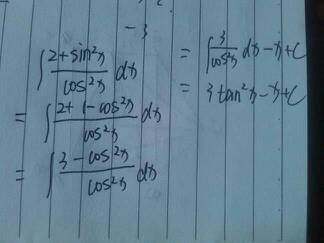 -3
∫ 2+sin²x / cos²x dx
= ∫ 2+1-cos²x / cos²x dx
= ∫ 3-cos²x / cos²x dx
= ∫ 3 / cos²x dx - x + C
= 3tan²x - x + C